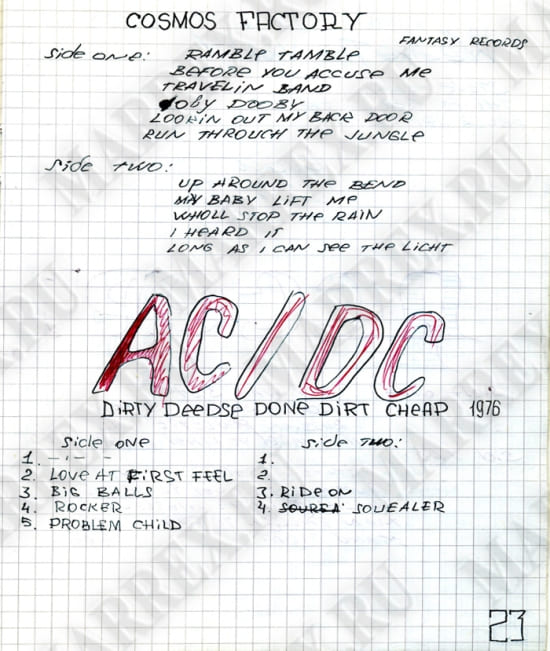 COSMOS FACTORY
FANTASY RECORDS
Side one: RAMBLE TAMBLE
BEFORE YOU ACCUSE ME
TRAVELIN BAND
OOBY DOOBY
LOOKIN OUT MY BACK DOOR
RUN THROUGH THE JUNGLE
Side TWO:
UP AROUND THE BEND
MY BABY LIFT ME
WHOLL STOP THE RAIN
I HEARD IT
LONG AS I CAN SEE THE LICHT
AC/DC
DIRTY DEEDSE DONE DIRT CHEAP 1976
Side ONE
1. - " -
2. LOVE AT FIRST FEEL
3. BIG BALLS
4. ROCKER
5. PROBLEM CHILD
Side TWO:
1.
2.
3. RIDE ON
4. SQUEALER
23
MARREX.RU